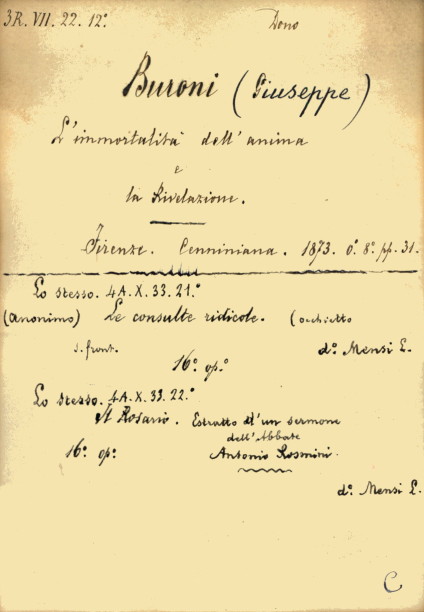 3R. VII. 22. 12.° Dono
Buroni (Giuseppe)
L'immortalità dell'anima
e
la Rivelazione.
Firenze. Cenniniana. 1873. 8.° pp. 31.
Lo stesso. 4A. X. 33. 21.°
(Anonimo) Le consulte ridicole. (occhietto
s. front. d.° Mensi L.
16.° op.°
Lo stesso. 4A. X. 33. 22.°
Il Rosario. Estratto d'un sermone
dell'Abbate
16.° op.° Antonio Rosmini.
d.° Mensi L.
C